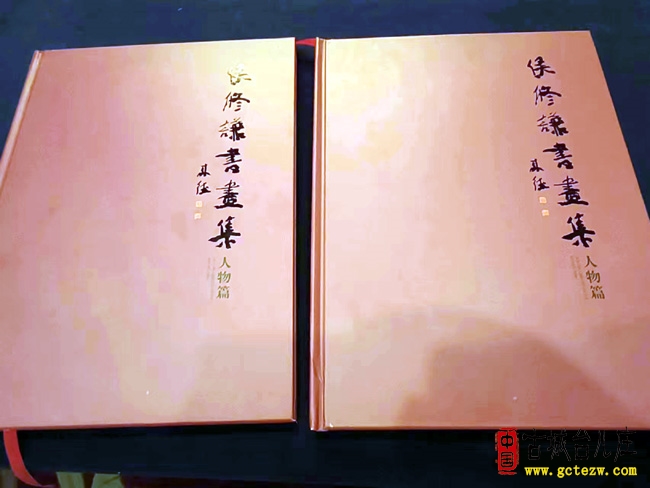 侯修谦書畫集
人物篇
侯修谦書畫集
人物篇
中国
古城台儿庄
www.gctezw.com